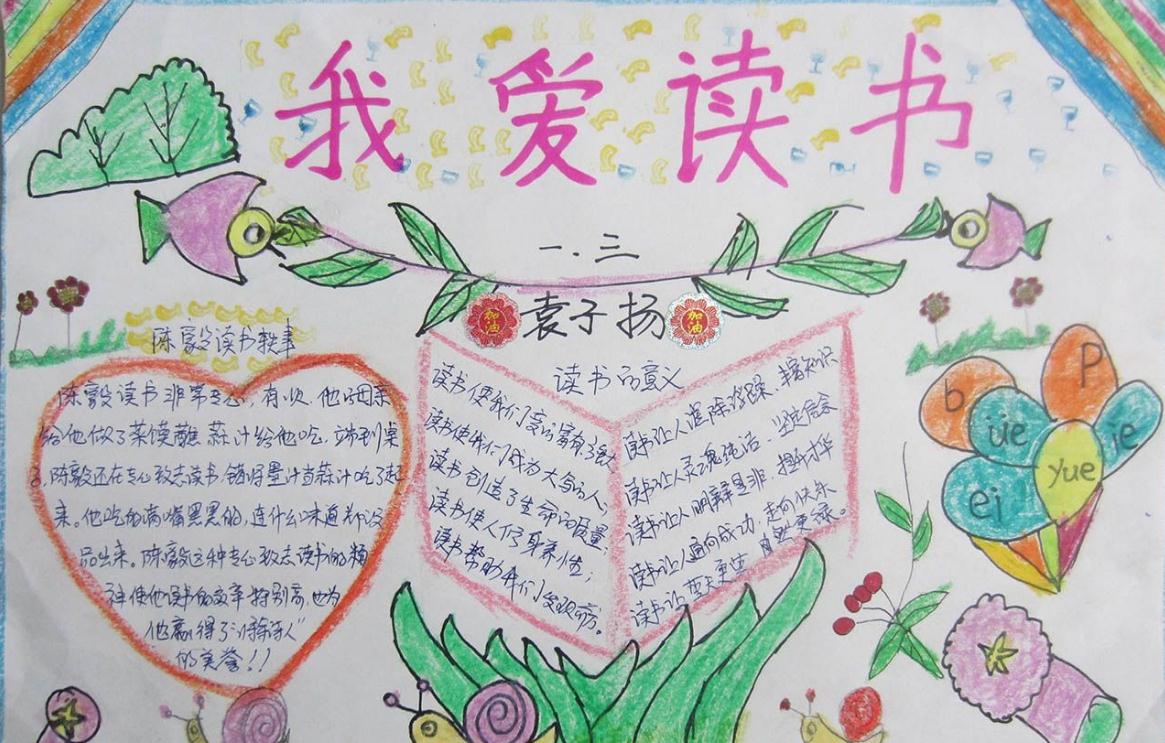 我爱读书
一.三
加油 袁子扬 加油
陈毅读书轶事
陈毅读书非常专心,有次,他的母亲
给他做了菜馍蘸蒜汁给他吃,端到桌
子,陈毅还在专心致志读书,错将墨汁当蒜汁吃了起
来。他吃的满嘴黑黑的,连什么味道都没
品出来。陈毅这种专心致志读书的精
神使他读书的效率特别高,也为
他赢得了“诗
的美誉!!
读书的意义
读书使我们变的富有强大
读书使我们成为大写的人,
读书创造了生命的质量;
读书使人修身养性;
读书帮助我们
读书让人 丰富知识
读书让人灵魂纯洁,坚定信念
读书让人明辨是非,提升才华
读书让人通向成功,走向快乐
读书让蓝天更蓝,自然更绿。
b
P
üe
ie
yue
ei